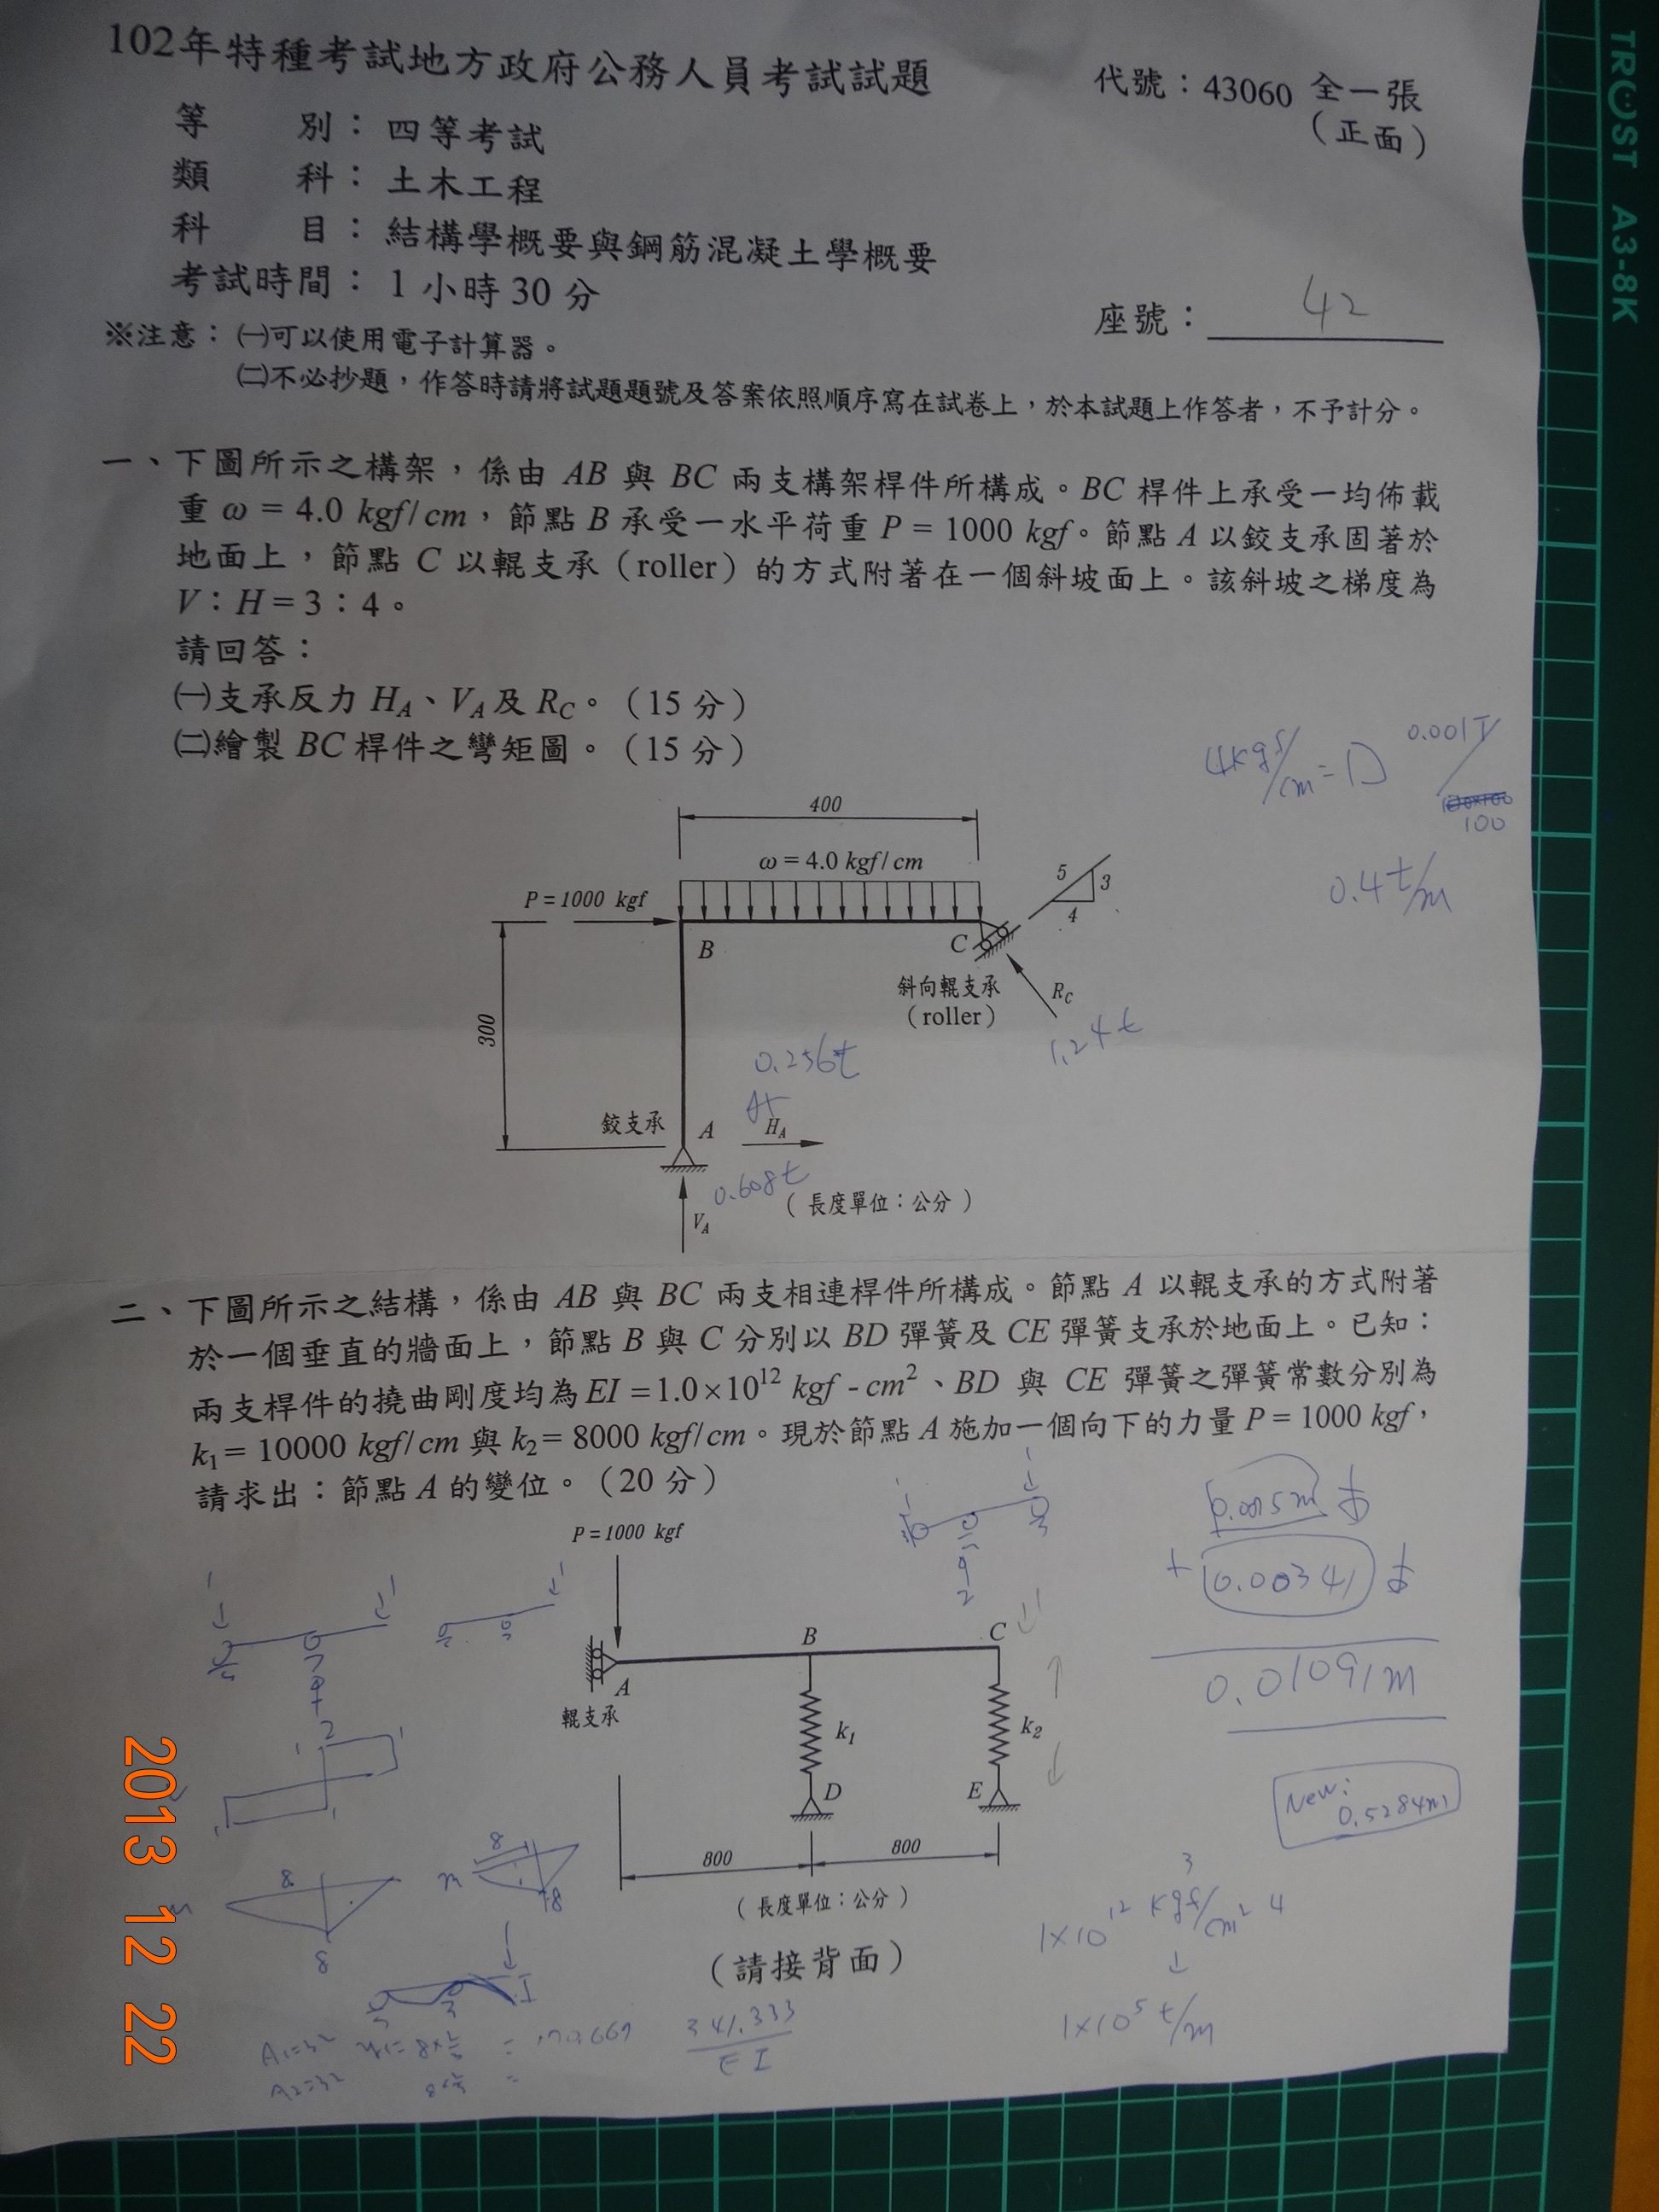 102年特種考試地方政府公務人員考試試題
代號：43060
全一張
（正面）
等 別：四等考試
類 科：土木工程
科 目：結構學概要與鋼筋混凝土學概要
考試時間：1 小時 30 分
座號：42
※注意：㈠可以使用電子計算器。
㈡不必抄題，作答時請將試題題號及答案依照順序寫在試卷上，於本試題上作答者，不予計分。
一、下圖所示之構架，係由 AB 與 BC 兩支構架桿件所構成。BC 桿件上承受一均佈載
重 ω = 4.0 kgf/cm，節點 B 承受一水平荷重 P = 1000 kgf。節點 A 以鉸支承固著於
地面上，節點 C 以輥支承（roller）的方式附著在一個斜坡面上。該斜坡之梯度為
V：H = 3：4。
請回答：
㈠支承反力 HA、VA 及 RC。（15 分）
㈡繪製 BC 桿件之彎矩圖。（15 分）
4kgf/cm =
0.001T
100
0.4 t/m
400
ω = 4.0 kgf/cm
P = 1000 kgf
5
3
4
B
C
斜向輥支承
（roller）
RC
1.24t
300
0.256t
鉸支承
A
HA
0.608t
VA
（長度單位：公分）
二、下圖所示之結構，係由 AB 與 BC 兩支相連桿件所構成。節點 A 以輥支承的方式附著
於一個垂直的牆面上，節點 B 與 C 分別以 BD 彈簧及 CE 彈簧支承於地面上。已知：
兩支桿件的撓曲剛度均為 EI = 1.0×10¹² kgf - cm²、BD 與 CE 彈簧之彈簧常數分別為
k1 = 10000 kgf/cm 與 k2 = 8000 kgf/cm。現於節點 A 施加一個向下的力量 P = 1000 kgf，
請求出：節點 A 的變位。（20 分）
P = 1000 kgf
+ 0.00341
0.01091m
New:
0.5284m
A
B
C
輥支承
k1
k2
D
E
800
800
（長度單位：公分）
（請接背面）
1×10¹² kgf/cm²
1×10⁵ t/m
341.333
EI
A1=32
A2=32
TRUST A3-8K
2013 12 22